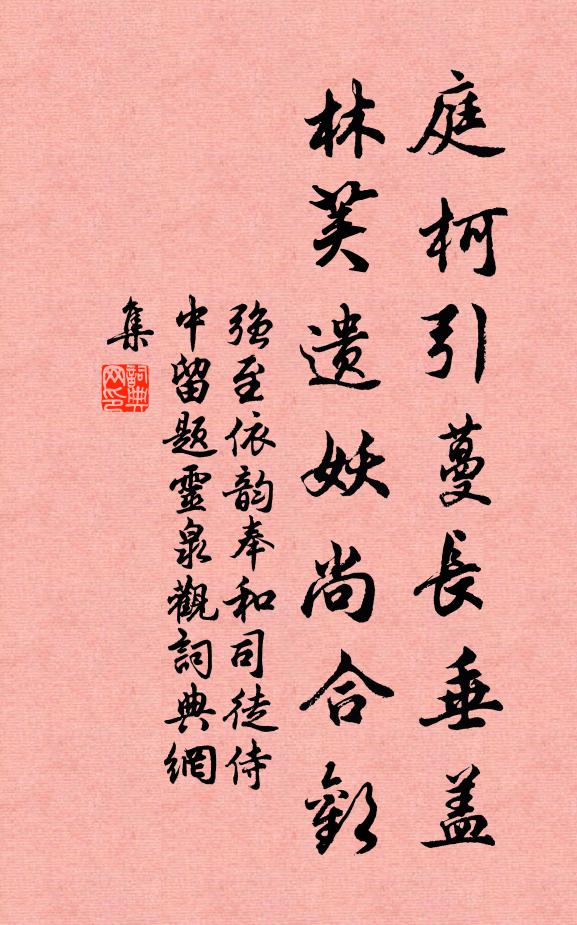 庭柯引蔓長垂盖
林芙遗妖尚合歡
强至依韵奉和司徒侍
中留题靈泉觀詞典網
集
詞典
网印